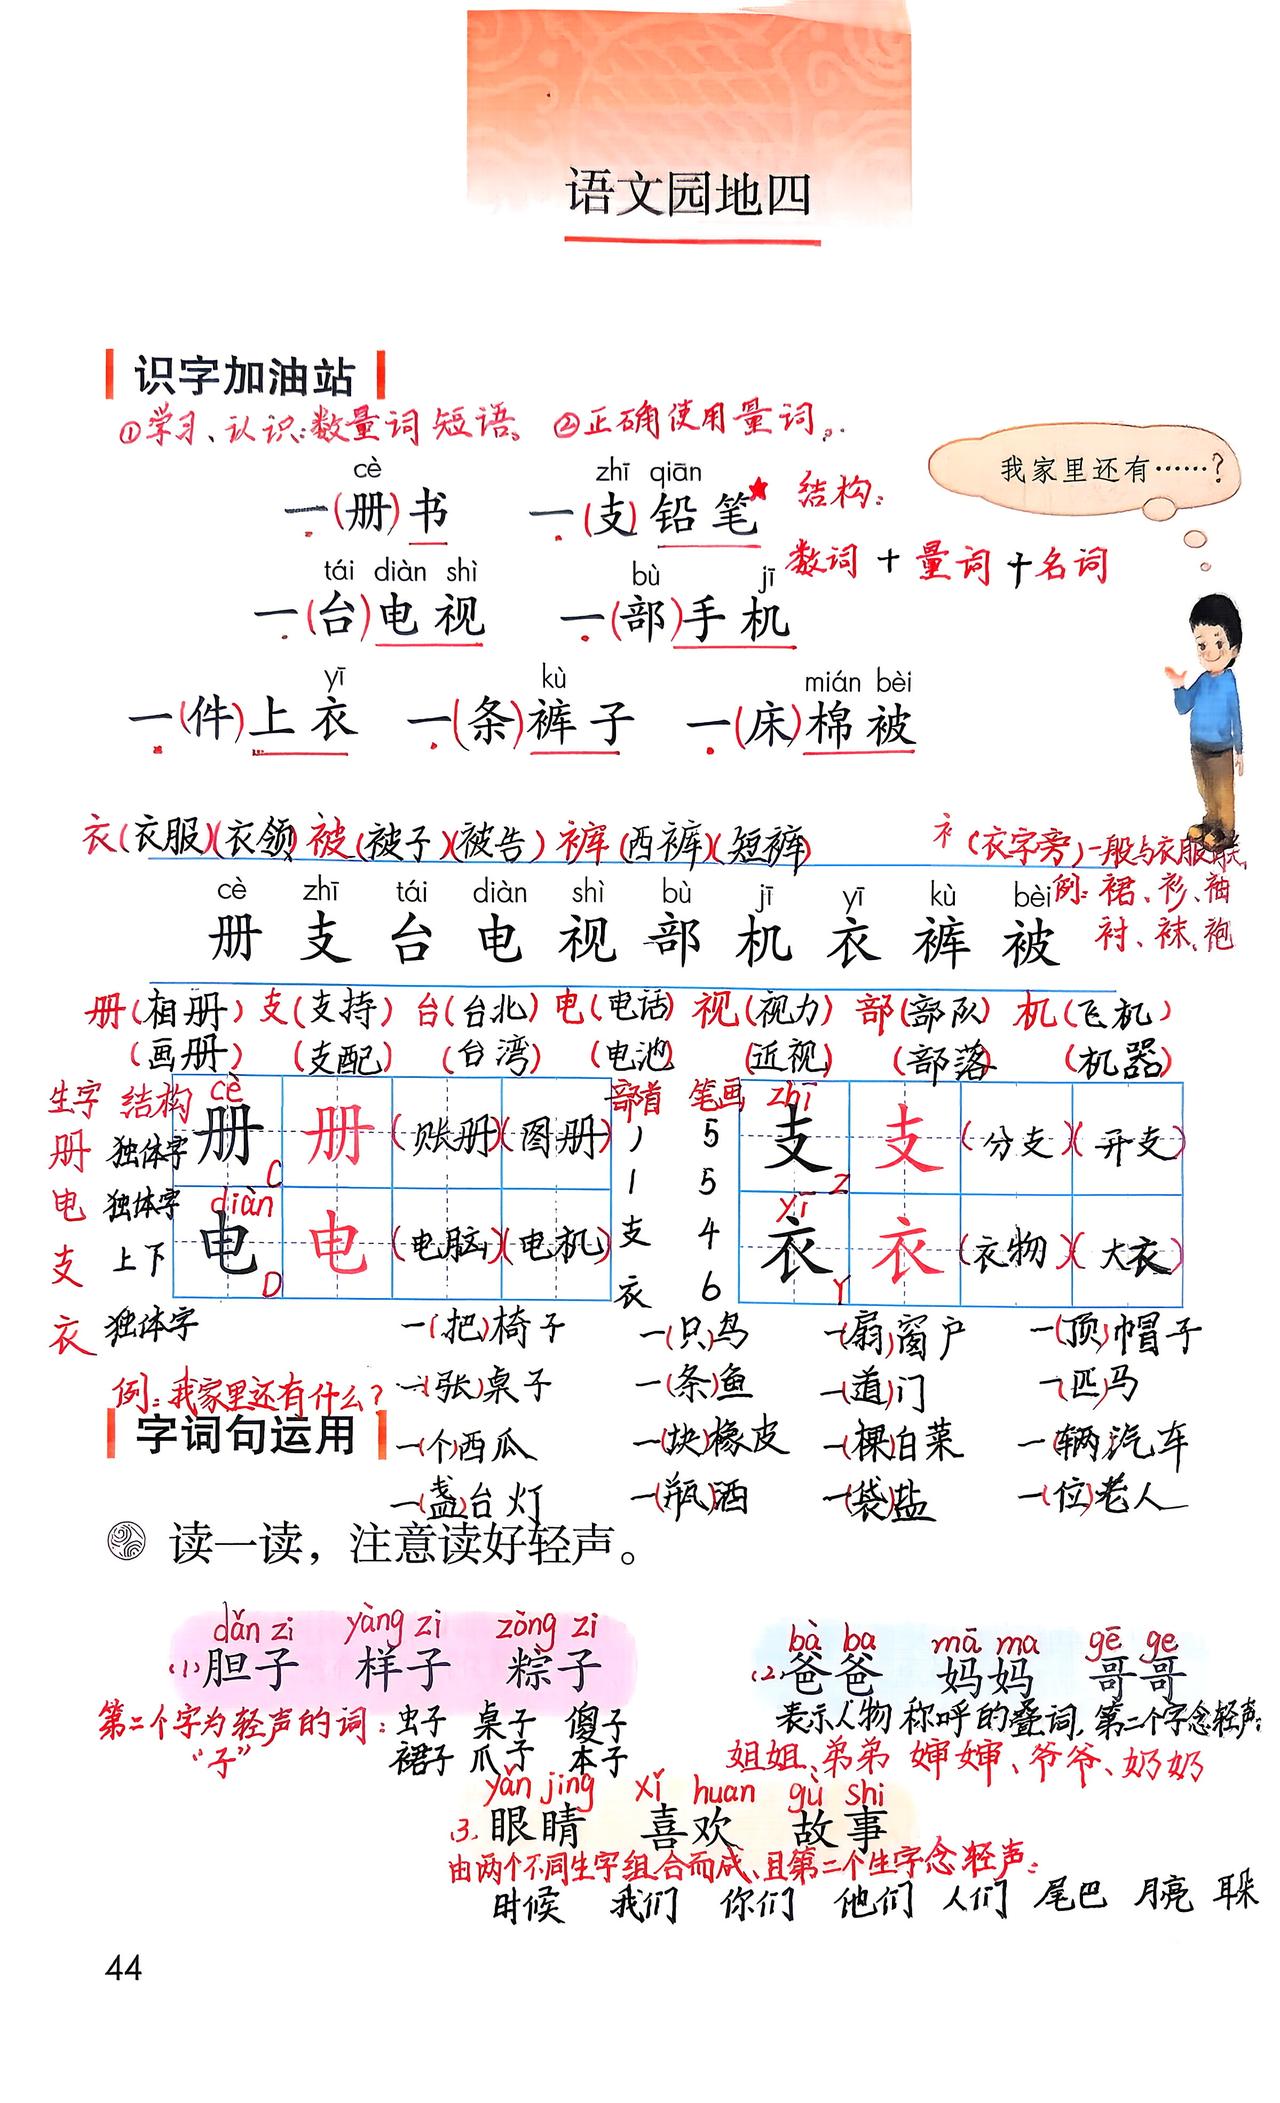 语文园地四
识字加油站
①学习、认识：数量词短语。 ②正确使用量词。
我家里还有……？
cè zhī qiān
一(册)书 一(支)铅笔★ 结构：
数词＋量词＋名词
tái diàn shì bù jī
一(台)电视 一(部)手机
yī kù mián bèi
一(件)上衣 一(条)裤子 一(床)棉被
衣(衣服)(衣领) 被(被子)(被告) 裤(西裤)(短裤) 衤(衣字旁)一般与衣服有关,
例：裙、衫、袖
衬、袜、袍
cè zhī tái diàn shì bù jī yī kù bèi
册 支 台 电 视 部 机 衣 裤 被
册(相册) 支(支持) 台(台北) 电(电话) 视(视力) 部(部队) 机(飞机)
(画册) (支配) (台湾) (电池) (近视) (部落) (机器)
生字 结构 cè 部首 笔画 zhī
册 独体字 册 C 册 (账册)(图册) 丿 5 支 Z 支 (分支)(开支)
电 独体字 diàn 丨 5 yī
支 上下 电 D 电 (电脑)(电机) 支 4 衣 Y 衣 (衣物)(大衣)
衣 独体字 衣 6
一(把)椅子 一(只)鸟 一(扇)窗户 一(顶)帽子
例：我家里还有什么？ 一(张)桌子 一(条)鱼 一(道)门 一(匹)马
字词句运用 一(个)西瓜 一(块)橡皮 一(棵)白菜 一(辆)汽车
一(盏)台灯 一(瓶)酒 一(袋)盐 一(位)老人
读一读，注意读好轻声。
dǎn zi yàng zi zòng zi
(1)胆子 样子 粽子
第二个字为轻声的词：虫子 桌子 傻子
“子” 裙子 爪子 本子
bà ba mā ma gē ge
(2)爸爸 妈妈 哥哥
表示人物称呼的叠词，第二个字念轻声：
姐姐、弟弟 婶婶、爷爷、奶奶
yǎn jing xǐ huan gù shi
3.眼睛 喜欢 故事
由两个不同生字组合而成、且第二个生字念轻声：
时候 我们 你们 他们 人们 尾巴 月亮 耳朵
44